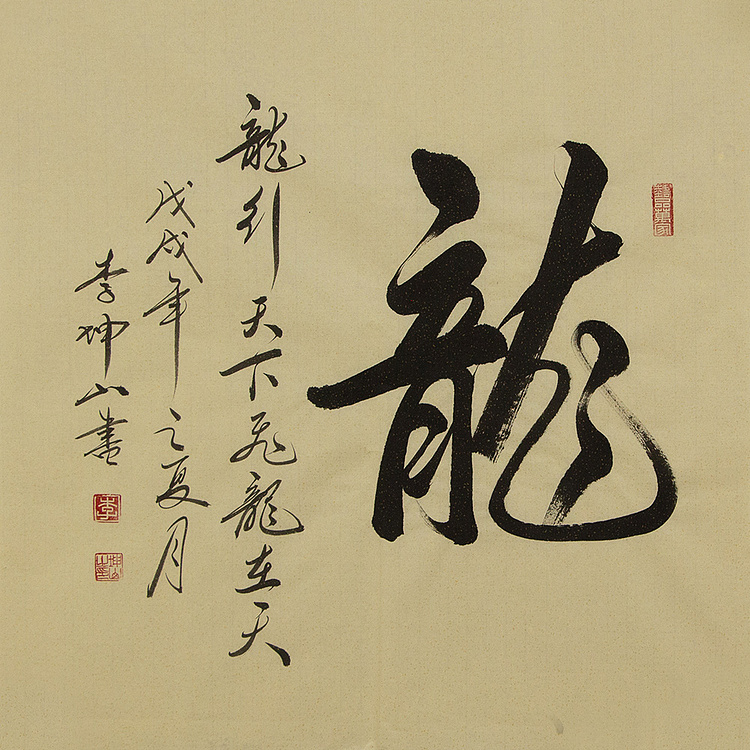 龍
龍行天下飛龍在天
戊戌年之夏月
李坤山書
李